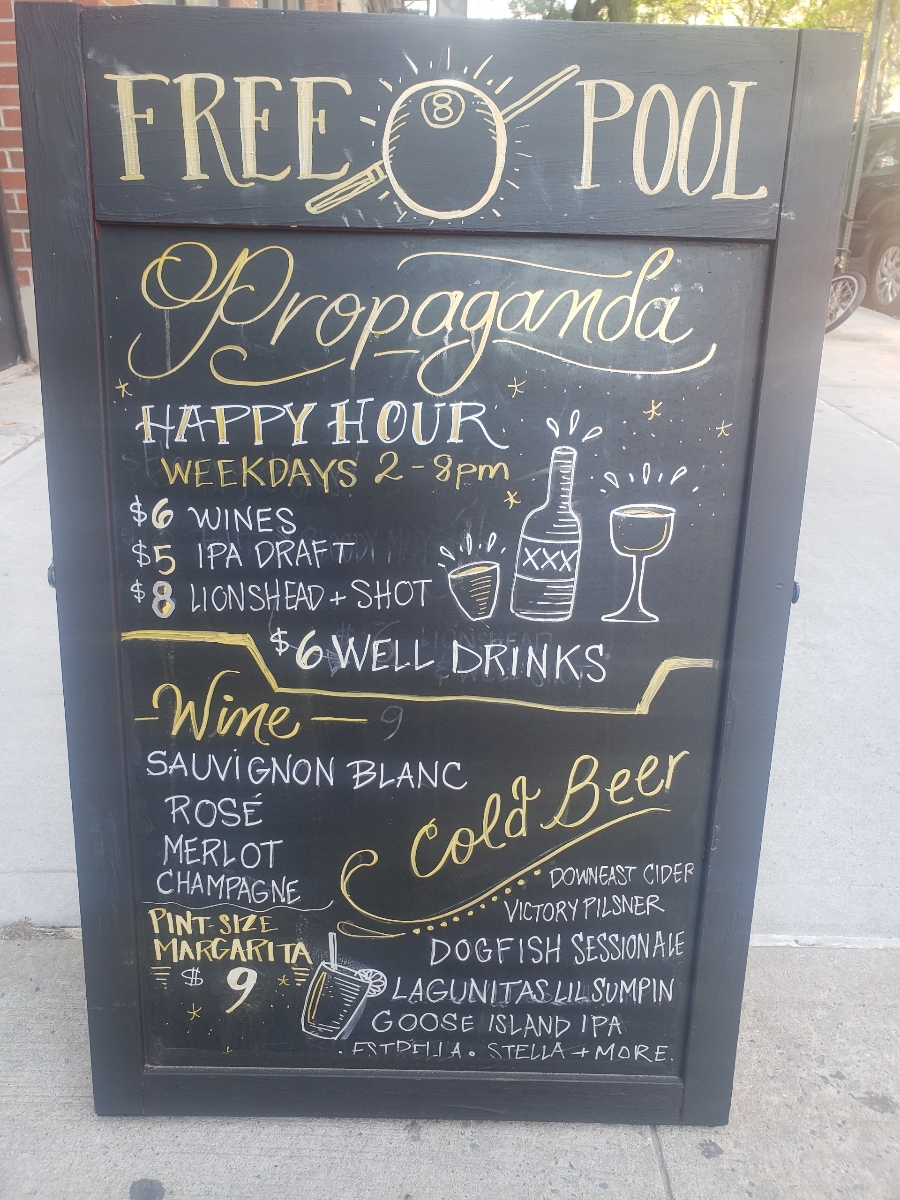 FREE 8 POOL
Propaganda
HAPPY HOUR
WEEKDAYS 2-8pm
$6 WINES
$5 IPA DRAFT
$8 LIONSHEAD + SHOT
XXX
$6 WELL DRINKS
Wine 9
SAUVIGNON BLANC
ROSÉ
MERLOT
CHAMPAGNE
PINT-SIZE
MARGARITA
$9
Cold Beer
DOWNEAST CIDER
VICTORY PILSNER
DOGFISH SESSION ALE
LAGUNITAS LIL SUMPIN
GOOSE ISLAND IPA
. ESTRELLA . STELLA + MORE.